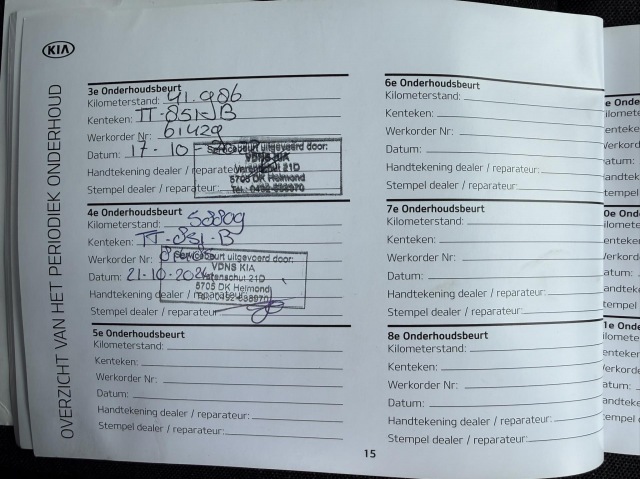 KIA
OVERZICHT VAN HET PERIODIEK ONDERHOUD
3e Onderhoudsbeurt
Kilometerstand: 41.986
Kenteken:
Werkorder Nr: 61429
Datum: 17-10-
Handtekening dealer / reparateur:
Stempel dealer / reparateur:
Servicebeurt uitgevoerd door:
VDNS KIA
Varenschut 21D
5705 DK Helmond
Tel.: 0492-588970
4e Onderhoudsbeurt
Kilometerstand: 58809
Kenteken:
Werkorder Nr:
Datum: 21-10-2024
Handtekening dealer / reparateur:
Stempel dealer / reparateur:
Servicebeurt uitgevoerd door:
VDNS KIA
Varenschut 21D
5705 DK Helmond
Tel.: 0492-588970
5e Onderhoudsbeurt
Kilometerstand:
Kenteken:
Werkorder Nr:
Datum:
Handtekening dealer / reparateur:
Stempel dealer / reparateur:
6e Onderhoudsbeurt
Kilometerstand:
Kenteken:
Werkorder Nr:
Datum:
Handtekening dealer / reparateur:
Stempel dealer / reparateur:
7e Onderhoudsbeurt
Kilometerstand:
Kenteken:
Werkorder Nr:
Datum:
Handtekening dealer / reparateur:
Stempel dealer / reparateur:
8e Onderhoudsbeurt
Kilometerstand:
Kenteken:
Werkorder Nr:
Datum:
Handtekening dealer / reparateur:
Stempel dealer / reparateur:
15